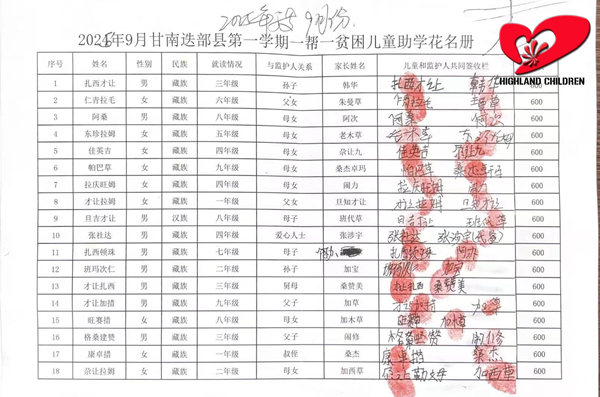 2025年秋9月份
2025年9月甘南迭部县第一学期一帮一贫困儿童助学花名册
HIGHLAND CHILDREN
序号 姓名 性别 民族 就读情况 与监护人关系 家长姓名 儿童和监护人共同签收栏 金额
1 扎西才让 男 藏族 三年级 孙子 韩华 扎西才让 韩华 600
2 仁青拉毛 女 藏族 六年级 父女 朱曼草 600
3 阿桑 男 藏族 八年级 母女 阿次 阿桑 阿次 600
4 东珍拉姆 女 藏族 五年级 母女 老木草 600
5 佳英吉 女 藏族 四年级 母女 尕让九 佳英吉 尕让九 600
6 帕巴草 女 藏族 九年级 母女 桑杰卓玛 帕巴草 600
7 拉庆旺姆 女 藏族 四年级 母女 闹力 拉庆旺姆 闹力 600
8 才让拉姆 女 藏族 一年级 父女 旦知才让 才让拉姆 旦知才让 600
9 旦吉才让 男 汉族 八年级 母子 班代草 旦吉才让 班代草 600
10 张社达 男 藏族 四年级 爱心人士 张涉宇 张社达 600
11 扎西顿珠 男 藏族 七年级 母子 扎西顿珠 600
12 班玛次仁 男 藏族 二年级 孙子 加宝 加宝 600
13 才让扎西 男 藏族 三年级 舅母 桑赞美 才让扎西 桑赞美 600
14 才让加措 男 藏族 九年级 父子 加草 才让加措 加草 600
15 旺赛措 女 藏族 八年级 母女 加木草 加木草 600
16 格桑建赞 男 藏族 一年级 父子 闹修 格桑建赞 闹修 600
17 康卓措 女 藏族 一年级 叔侄 桑杰 康卓措 桑杰 600
18 尕让拉姆 女 藏族 二年级 母女 加西草 加西草 600